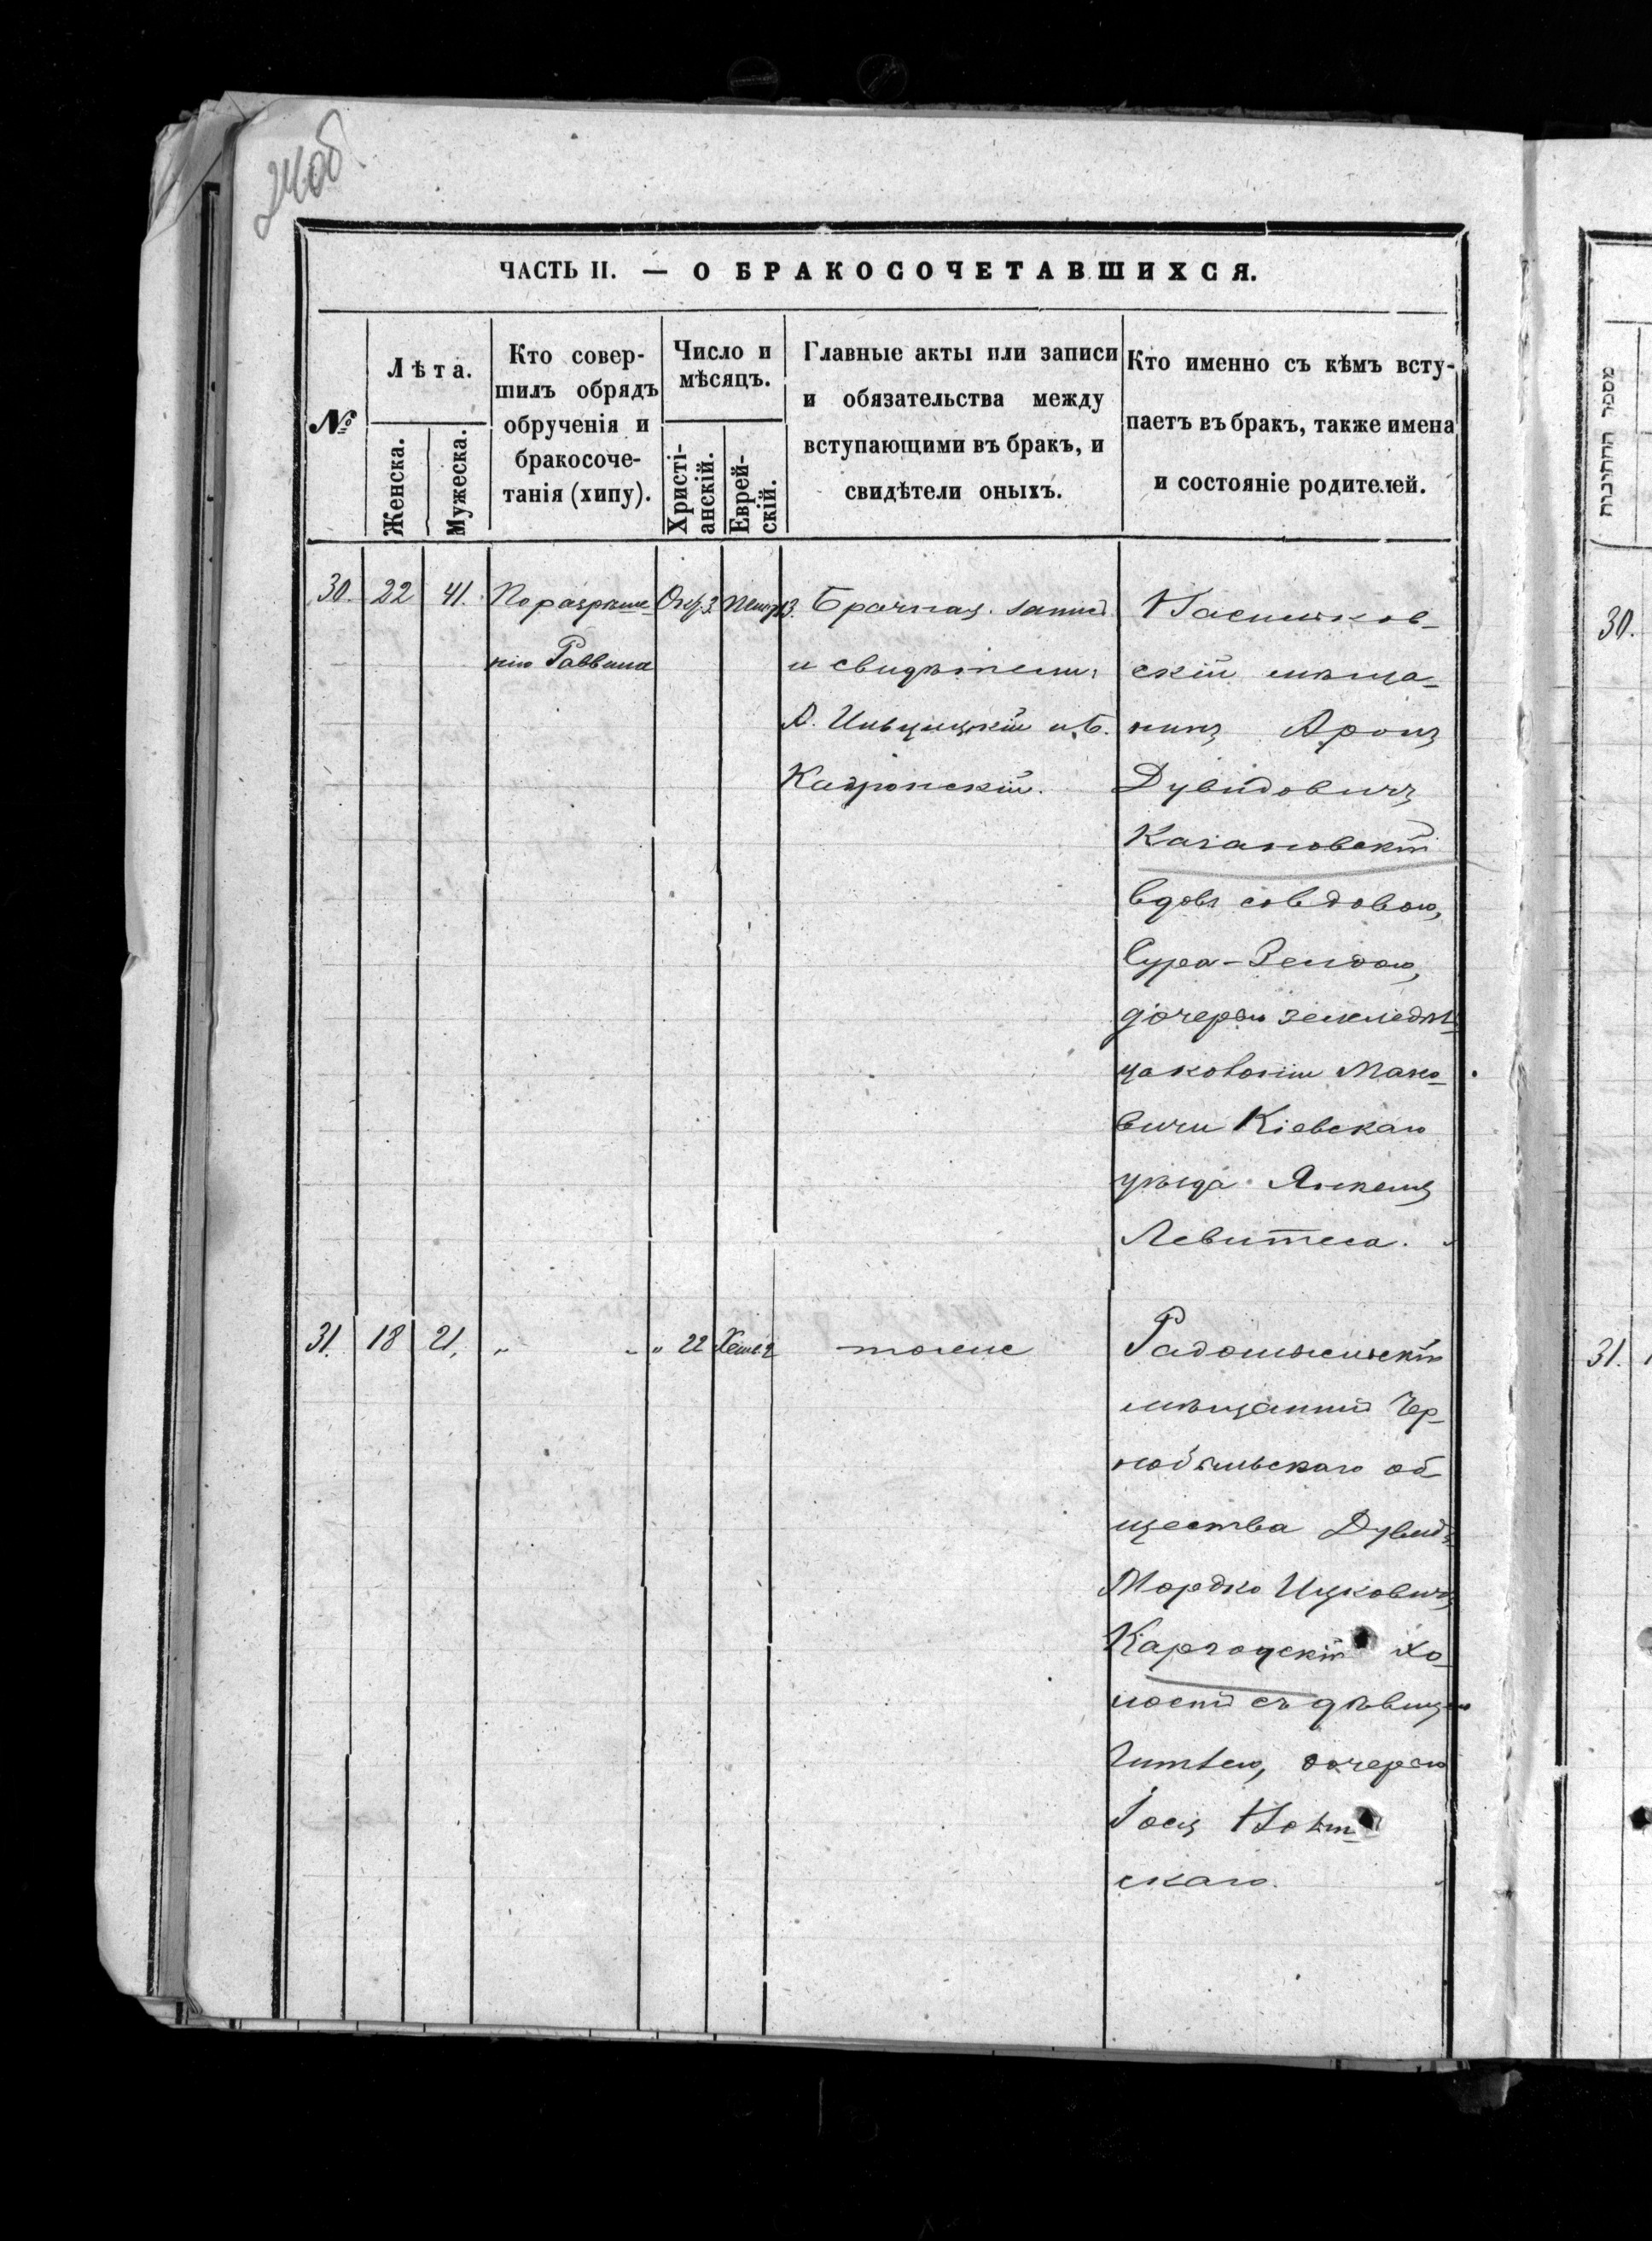 24об
ЧАСТЬ II. — О БРАКОСОЧЕТАВШИХСЯ.
№
Лѣта.
Женска.
Мужеска.
Кто совер-
шилъ обрядъ
обрученія и
бракосоче-
танія (хипу).
Число и
мѣсяцъ.
Христі-
анскій.
Еврей-
скій.
Главные акты или записи
и обязательства между
вступающими въ бракъ, и
свидѣтели оныхъ.
Кто именно съ кѣмъ всту-
паетъ въ бракъ, также имена
и состояніе родителей.
30. 22 41. По разрѣше-
нію Раввина
13.
Брачная запис.
и свидѣтели:
А. и Б.
Васильков-
скій мѣща-
нинъ Аронъ
Дувидовичъ
Кагановскій
вдов. со вдовою,
Сура-Зельдою,
дочерью земледѣл.
колоніи Мако-
вичи Кіевскаго
уѣзда Янкеля
Левитеса.
31. 18 21. „ „ „ 22 Хешв. 2 тоже
Радомысльскій
мѣщанинъ Чер-
нобыльскаго об-
щества Дувидъ-
Мордко Ицковичъ
ской хо-
лостъ съ дѣвицею
Гитлею, дочерью
Іося
скаго.
מספר החתונות
30.
31.